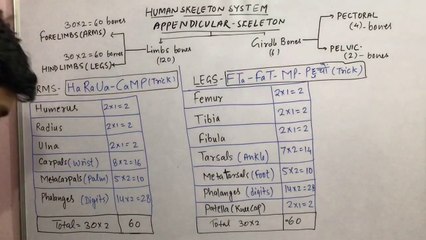 HUMAN SKELETON SYSTEM
APPENDICULAR-SKELETON
30X2=60 bones
FORELIMBS(ARMS)
30X2=60 bones
HINDLIMBS(LEGS)
Limbs bones
(120)
Girdle Bones
(6)
PECTORAL
(4)-bones
PELVIC
(2)-bones
RMS- HaRaUa-CaMP(Trick)
Humerus 2x1=2
Radius 2x1=2
Ulna 2x1=2
Carpals(Wrist) 8x2=16
Metacarpals(Palm) 5x2=10
Phalanges (Digits) 14x2=28
Total=30X2 60
LEGS- FTa-FaT-MP- (Trick)
Femur 2x1=2
Tibia 2x1=2
Fibula 2x1=2
Tarsals (Ankle) 7x2=14
Metatarsals (Foot) 5x2=10
Phalanges (digits) 14x2=28
Patella (Knee Cap) 2x1=2
Total 30X2 =60